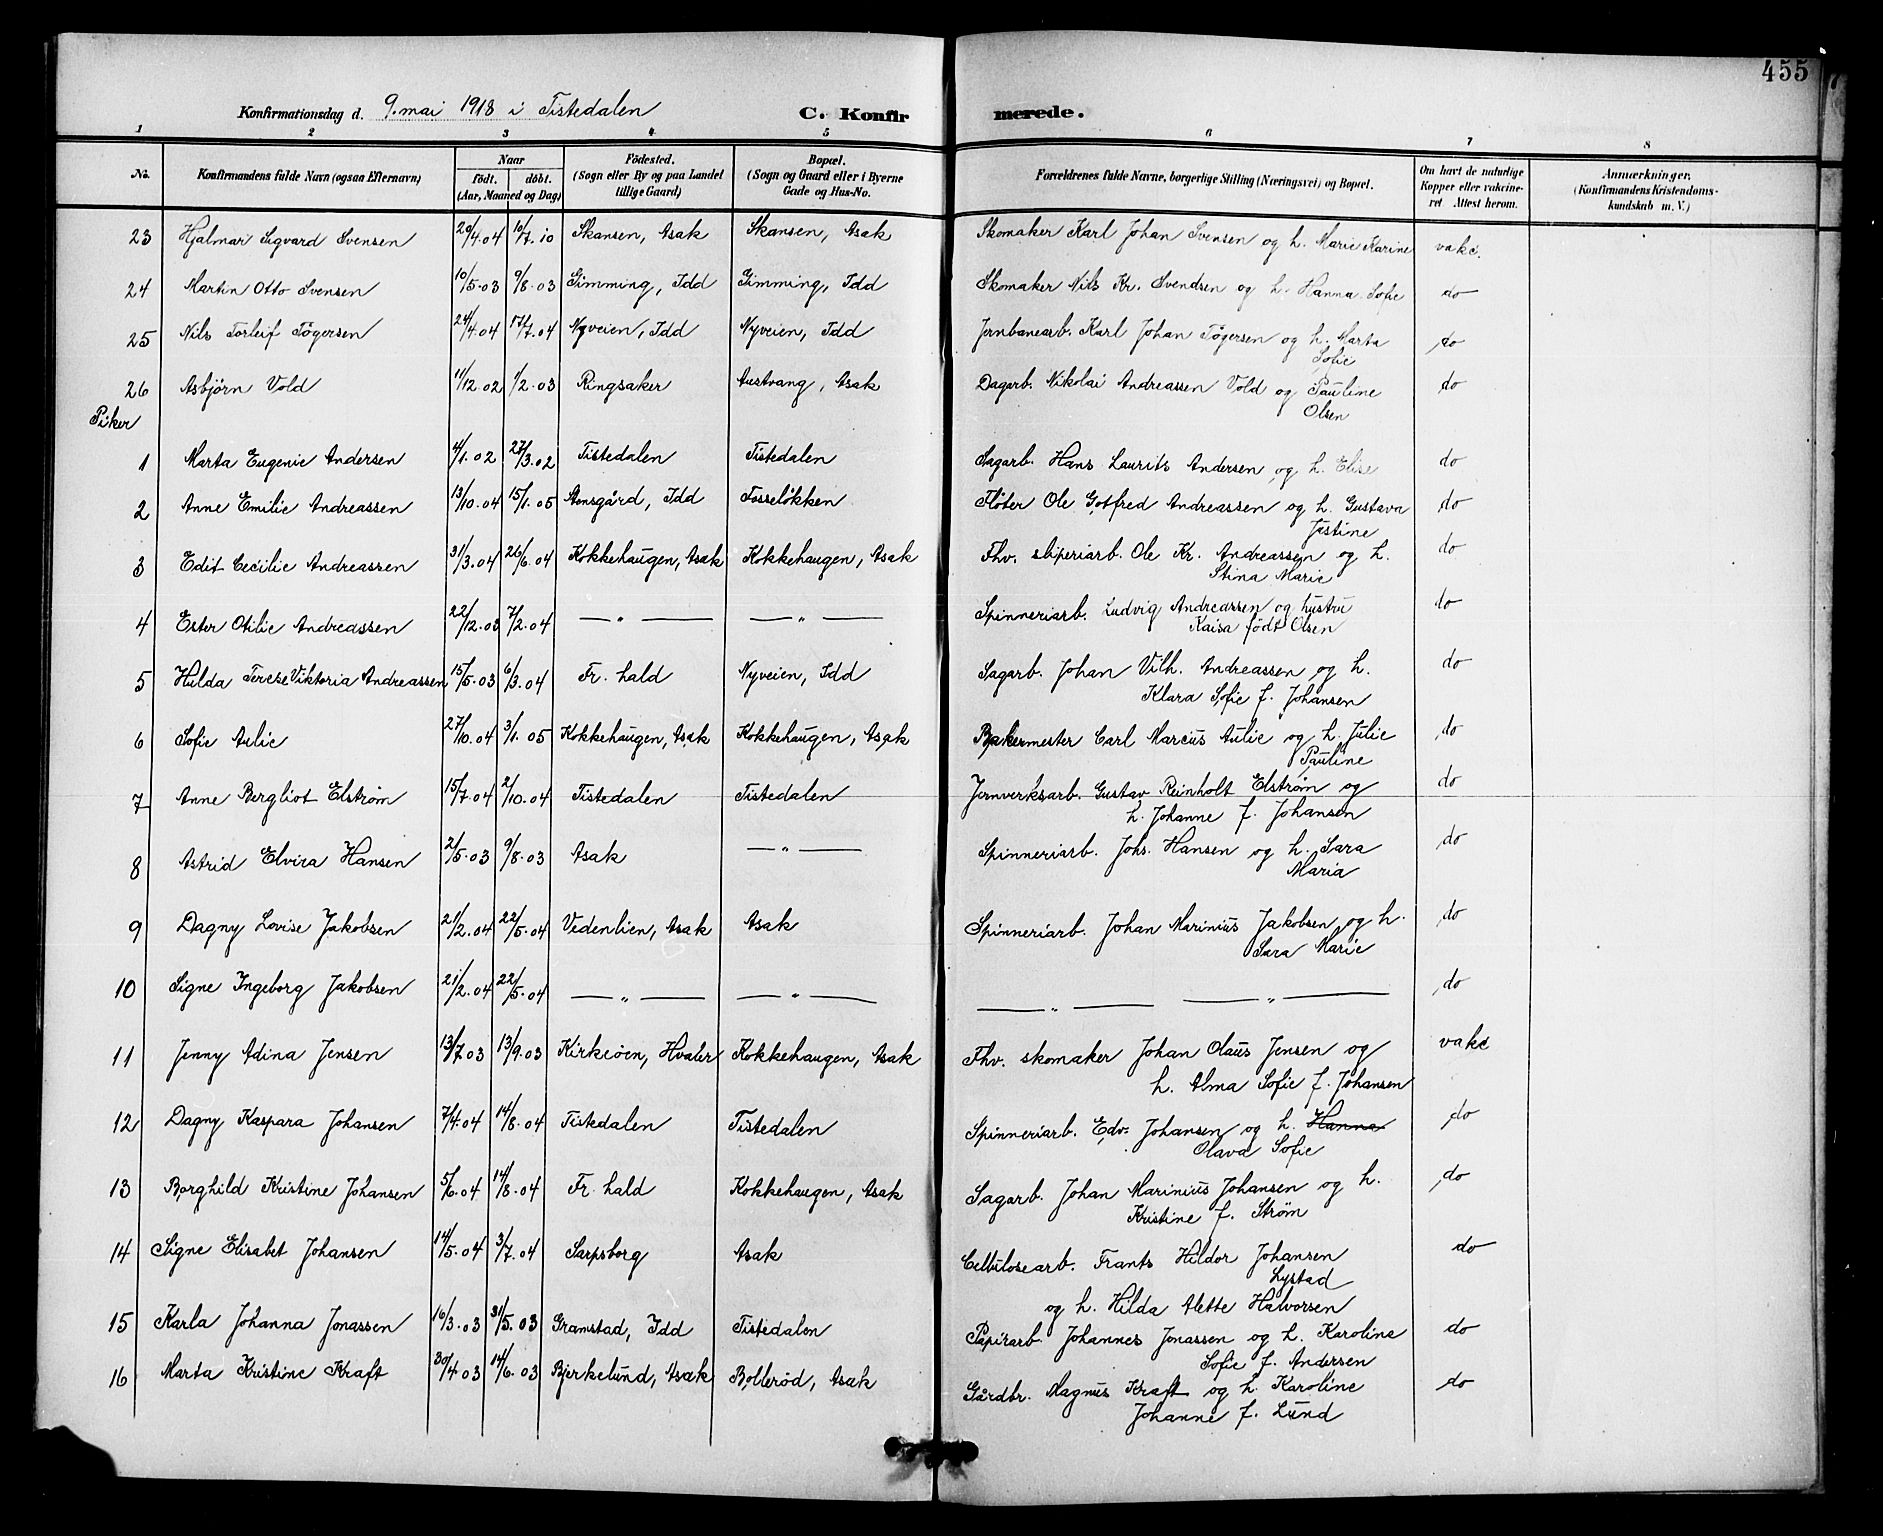 455
Konfirmationsdag d. 9. mai 1918 i Tistedalen C. Konfirmerede.
1 2 3 4 5 6 7 8
No. Konfirmandens fulde Navn (ogsaa Efternavn) Naar født. døbt. (Aar, Maaned og Dag) Födested. (Sogn eller By og paa Landet tillige Gaard) Bopæl. (Sogn og Gaard eller i Byerne Gade og Hus-No. Forældrenes fulde Navne, borgerlige Stilling (Næringsvei) og Bopæl. Om havt de naturlige Kopper eller vakcineret Attest herom. Anmærkninger. (Konfirmandens Kristendomskundskab m. V.)
23 Hjalmar Sigvard Svensen 20/4.04 10/7.10 Skansen, Asak Skansen, Asak Skomaker Karl Johan Svensen og h. Marie Karine vakc.
24 Martin Otto Svensen 10/5.03 9/8.03 Gimming, Idd Gimming, Idd Skomaker Nils Kr. Svendsen og h. Hanna Sofie do
25 Nils Torleif Tögersen 24/4.04 17/7.04 Nyveien, Idd Nyveien, Idd Jernbanearb. Karl Johan Tögersen og h. Marta Sofie do
26 Asbjörn Vold 11/12.02 1/2.03 Ringsaker Austvang, Asak Dagarb. Nikolai Andreassen Vold og Pauline Olsen do
Piker
1 Marta Eugenie Andersen 4/1.02 27/3.02 Tistedalen Tistedalen Sagarb. Hans Laurits Andersen og h. Elise do
2 Anne Emilie Andreassen 13/10.04 15/1.05 Aonsgård, Idd Fosseløkken Fløter Ole Gotfred Andreassen og h. Gustava Jøstine do
3 Edit Cecilie Andreassen 31/3.04 26/6.04 Kokkehaugen, Asak Kokkehaugen, Asak Fhv. sliperiarb. Ole Kr. Andreassen og h. Stina Marie do
4 Ester Otilie Andreassen 22/12.03 7/2.04 — " — — " — Spinneriarb. Ludvig Andreassen og hustru Kaisa født Olsen do
5 Hulda Terese Viktoria Andreassen 15/5.03 6/3.04 Fr. hald Nyveien, Idd Sagarb. Johan Vilh. Andreassen og h. Klara Sofie f. Johansen do
6 Sofie Aulie 27/10.04 3/1.05 Kokkehaugen, Asak Kokkehaugen, Asak Bakermester Carl Marcus Aulie og h. Julie Pauline do
7 Anne Bergliot Elstrøm 15/7.04 2/10.04 Tistedalen Tistedalen Jernverksarb. Gustav Reinholt Elstrøm og h. Johanne f. Johansen do
8 Astrid Elvira Hansen 2/5.03 9/8.03 Asak — " — Spinneriarb. Johs. Hansen og h. Sara Maria do
9 Dagny Lovise Jakobsen 21/2.04 22/5.04 Vedenlien, Asak Asak Spinneriarb. Johan Marinius Jakobsen og h. Sara Marie do
10 Signe Ingeborg Jakobsen 21/2.04 22/5.04 — " — — " — — " — — " — do
11 Jenny Adina Jensen 13/7.03 13/9.03 Kirkeöen, Hvaler Kokkehaugen, Asak Fhv. skomaker Johan Olaus Jensen og h. Alma Sofie f. Johansen vakc
12 Dagny Kaspara Johansen 7/4.04 14/8.04 Tistedalen Tistedalen Spinneriarb. Edv. Johansen og h. Hanna Olava Sofie do
13 Borghild Kristine Johansen 5/6.04 14/8.04 Fr. hald Kokkehaugen, Asak Sagarb. Johan Marinius Johansen og h. Kristine f. Strøm do
14 Signe Elisabet Johansen 14/5.04 3/7.04 Sarpsborg Asak Cellulosearb. Frants Hildor Johansen Lystad og h. Hilda Alette Halvorsen do
15 Karla Johanna Jonassen 16/3.03 31/5.03 Gramstad, Idd Tistedalen Papirarb. Johannes Jonassen og h. Karoline Sofie f. Andersen do
16 Marta Kristine Kraft 30/4.03 14/6.03 Bjerkelund, Asak Bollerød, Asak Gårdbr. Magnus Kraft og h. Karoline Johanne f. Lund do